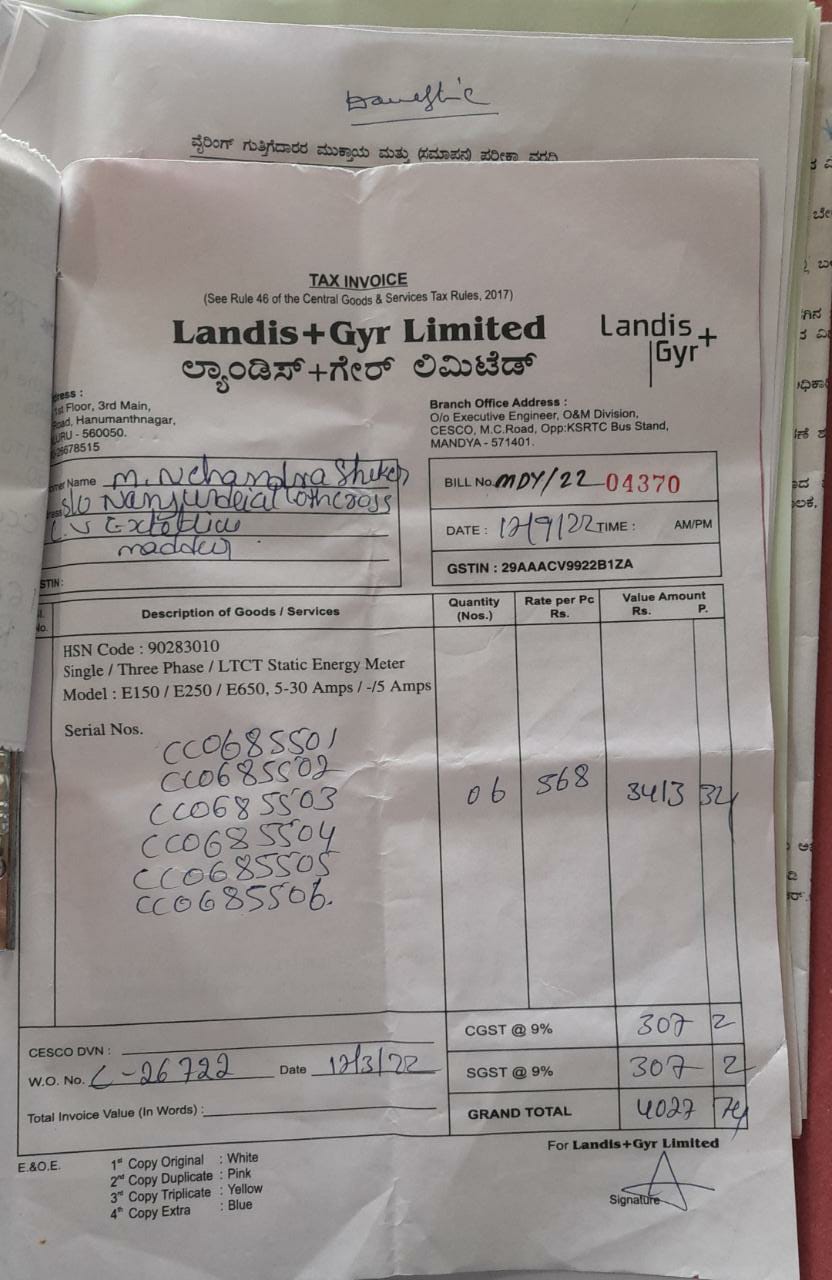 Domestic
ವೈರಿಂಗ್ ಗುತ್ತಿಗೆದಾರರ ಮುಕ್ತಾಯ ಮತ್ತು (ಸಮಾಪನ) ಪರೀಕ್ಷಾ ವರದಿ
TAX INVOICE
(See Rule 46 of the Central Goods & Services Tax Rules, 2017)
Landis+Gyr Limited
Landis+
Gyr
ಲ್ಯಾಂಡಿಸ್+ಗೇರ್ ಲಿಮಿಟೆಡ್
ress :
1st Floor, 3rd Main,
oad, Hanumanthnagar,
URU - 560050.
26678515
Branch Office Address :
O/o Executive Engineer, O&M Division,
CESCO, M.C.Road, Opp:KSRTC Bus Stand,
MANDYA - 571401.
mer Name M.N chandra Sheker
ess S/o Nanjundeia cross
maddur
STIN:
BILL No. MDY/22 04370
DATE : 12/9/22 TIME : AM/PM
GSTIN : 29AAACV9922B1ZA
No. Description of Goods / Services Quantity (Nos.) Rate per Pc Rs. Value Amount Rs. P.
HSN Code : 90283010
Single / Three Phase / LTCT Static Energy Meter
Model : E150 / E250 / E650, 5-30 Amps / -/5 Amps
Serial Nos.
CC0685501
CC0685502
CC0685503
CC0685504
CC0685505
CC0685506.
06 568 3413 34
CGST @ 9% 307 2
SGST @ 9% 307 2
GRAND TOTAL 4027 74
CESCO DVN :
W.O. No. C-26722 Date 12/3/22
Total Invoice Value (In Words) :
For Landis+Gyr Limited
Signature
E.&O.E.
1st Copy Original : White
2nd Copy Duplicate : Pink
3rd Copy Triplicate : Yellow
4th Copy Extra : Blue